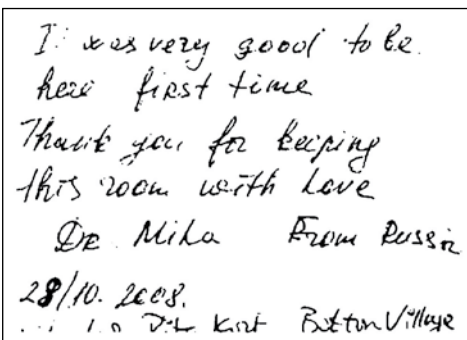 I was very good to be
here first time
Thank you for keeping
this room with love
DR Mila From Russia
28/10. 2008.
Kist Botton Village